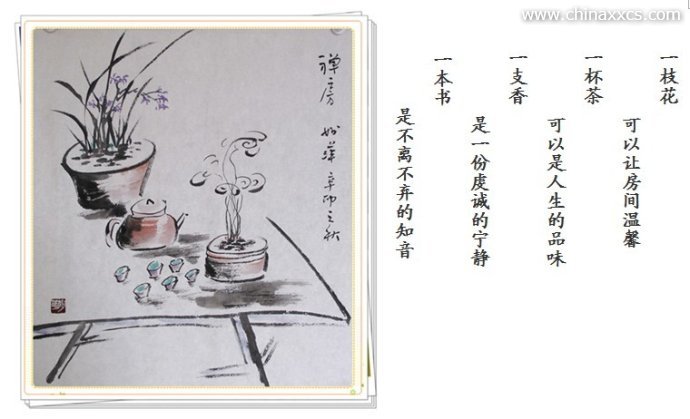 www.chinaxxcs.com
一枝花
可以让房间温馨
一杯茶
可以是人生的品味
一支香
是一份虔诚的宁静
一本书
是不离不弃的知音
禅房
辛卯之秋